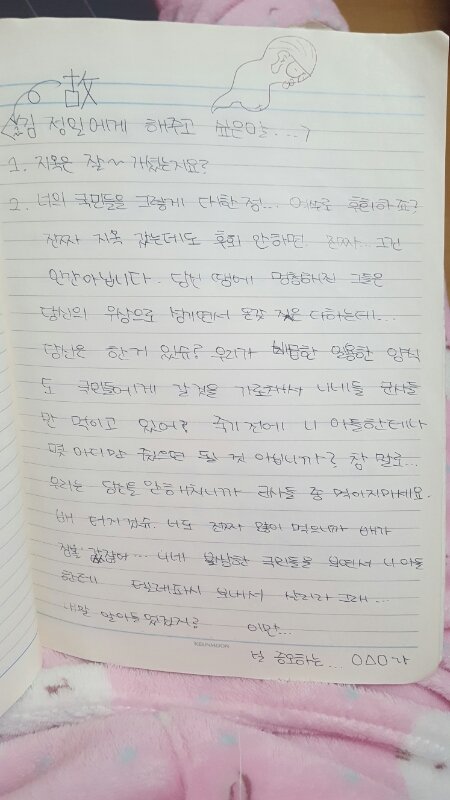 故
김정일에게 해주고 싶은 말...?
1. 지옥은 잘~ 가셨는지요?
2. 너의 국민들을 그렇게 대한 점... 여쭈로 후회하죠?
진짜 지옥 갔는데도 후회 안하면 진짜.. 그건
인간 아닙니다. 당신 땜에 멍청해진 그들은
당신의 우상으로 섬기면서 온갖 짓은 다하는데...
당신은 한게 있슈? 우리가 한 일용한 양식
도 국민들에게 갈 것을 가로채서 니네들 군사들
만 먹이고 있어? 죽기 전에 니 아들한테나
몇 마디만 줬으면 될 것 아닙니까? 참 말로...
우리는 당신을 안 해치니까 군사들 좀 먹이지마세요.
배 터지겠슈. 너도 진짜 많이 먹으니까 배가
장난 같잖어... 니네 불쌍한 국민들을 보면서 니 아들
한테 텔레파시 보내서 살리라 그래...
내말 알아들었겠지? 이만...
널 증오하는... ㅇㅿㅇ가
KEUNYOUNG